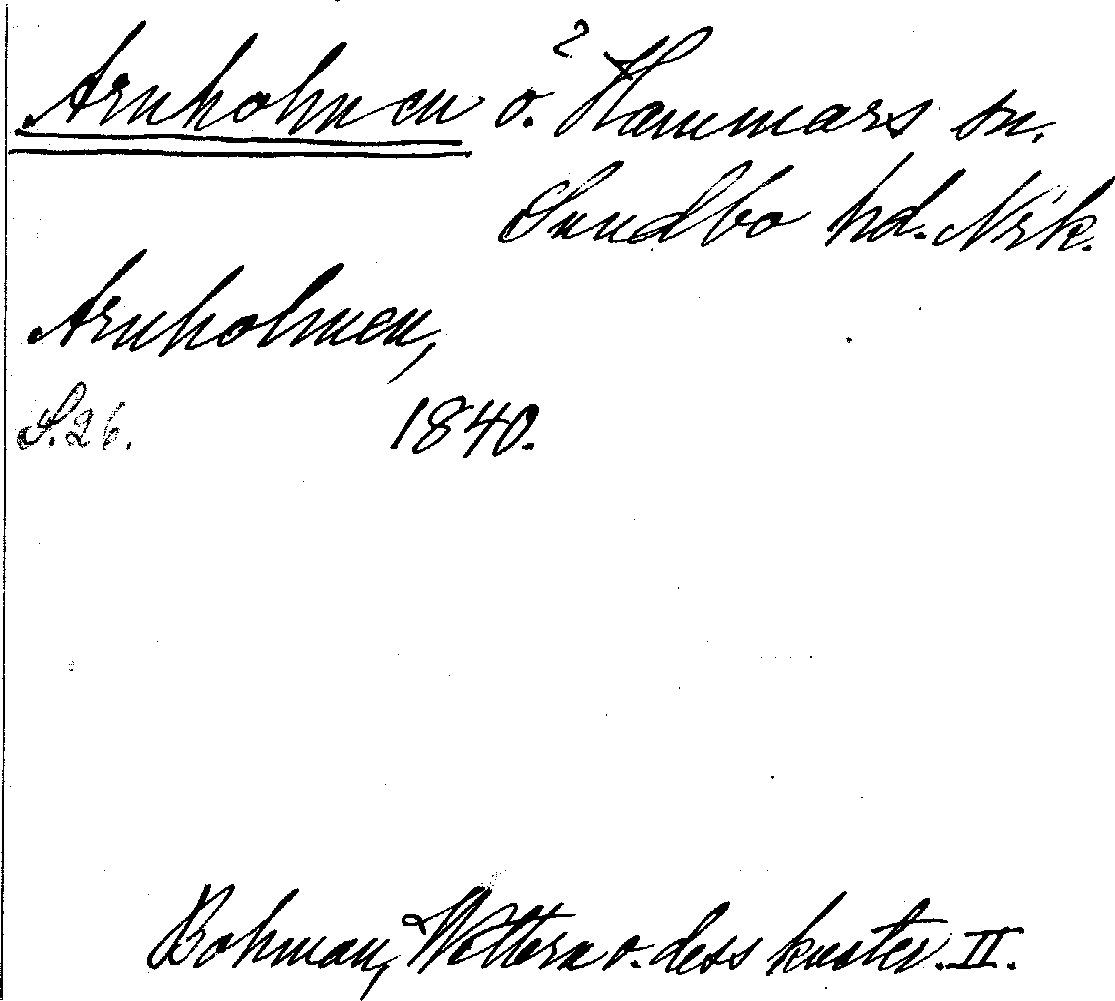 Arnholmen ö.² Hammars sn.
Sundbo hd. Nrk.
Arnholmen,
S. 26. 1840.
Bohman, Wettern o. dess kuster. II.